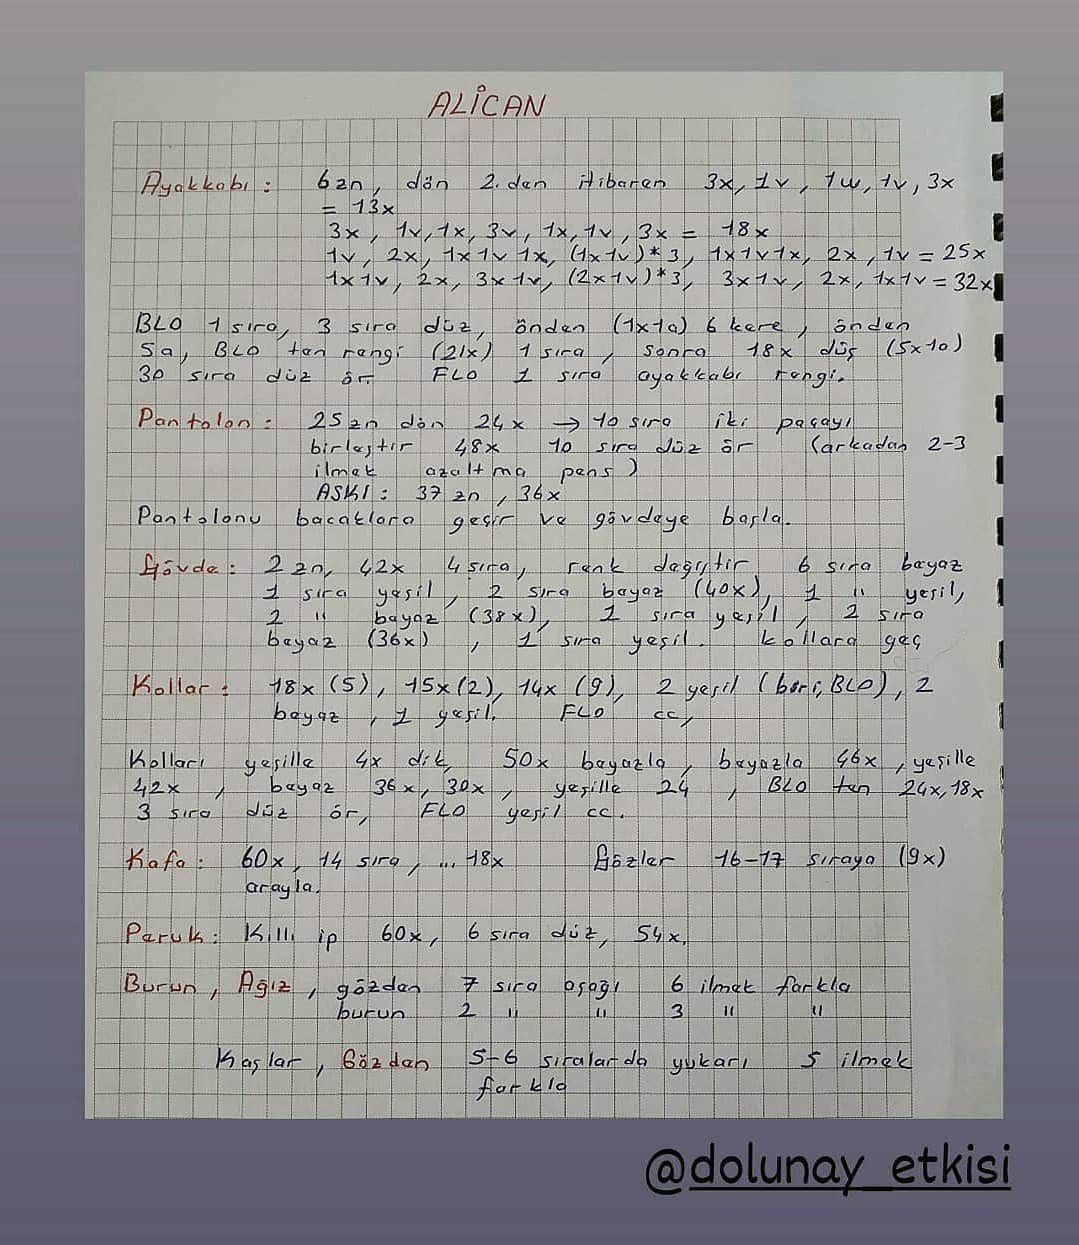 ALİCAN
Ayakkabı : 6zn, dön 2.den itibaren 3x, 1v, 1w, 1v, 3x
= 13x
3x, 1v, 1x, 3v, 1x, 1v, 3x = 18x
1v, 2x, 1x1v 1x, (1x1v)*3, 1x1v1x, 2x, 1v = 25x
1x1v, 2x, 3x1v, (2x1v)*3, 3x1v, 2x, 1x1v = 32x
BLO 1 sıra, 3 sıra düz, önden (1x1a) 6 kere, önden
5a, BLO ten rengi (21x) 1 sıra, sonra 18x düş (5x1a)
30 sıra düz ör. FLO 1 sıra ayakkabı rengi.
Pantolon : 25zn dön 24x → 10 sıra iki paçayı
birleştir 48x 10 sıra düz ör (arkadan 2-3
ilmek azaltma pens)
ASKI : 37 zn, 36x
Pantolonu bacaklara geçir ve gövdeye başla.
Gövde : 2 zn, 42x 4 sıra, renk değiştir 6 sıra beyaz
1 sıra yeşil, 2 sıra beyaz (40x), 1 " yeşil,
2 " beyaz (38x), 1 sıra yeşil, 2 sıra
beyaz (36x), 1 sıra yeşil. kollara geç
Kollar : 18x (5), 15x (2), 14x (9), 2 yeşil (biri, BLO), 2
beyaz, 1 yeşil. FLO cc,
Kolları yeşille 4x dik, 50x beyazla, beyazla 46x, yeşille
42x, beyaz 36x, 30x, yeşille 24, BLO ten 24x, 18x
3 sıra düz ör, FLO yeşil cc.
Kafa : 60x, 14 sıra, ... 18x Gözler 16-17 sıraya (9x)
arayla.
Peruk : Kıllı ip 60x, 6 sıra düz, 54x,
Burun, Ağız, gözden 7 sıra aşağı 6 ilmek farkla
burun 2 " " 3 " "
Kaşlar, Gözden 5-6 sıralarda yukarı 5 ilmek
farkla
@dolunay_etkisi